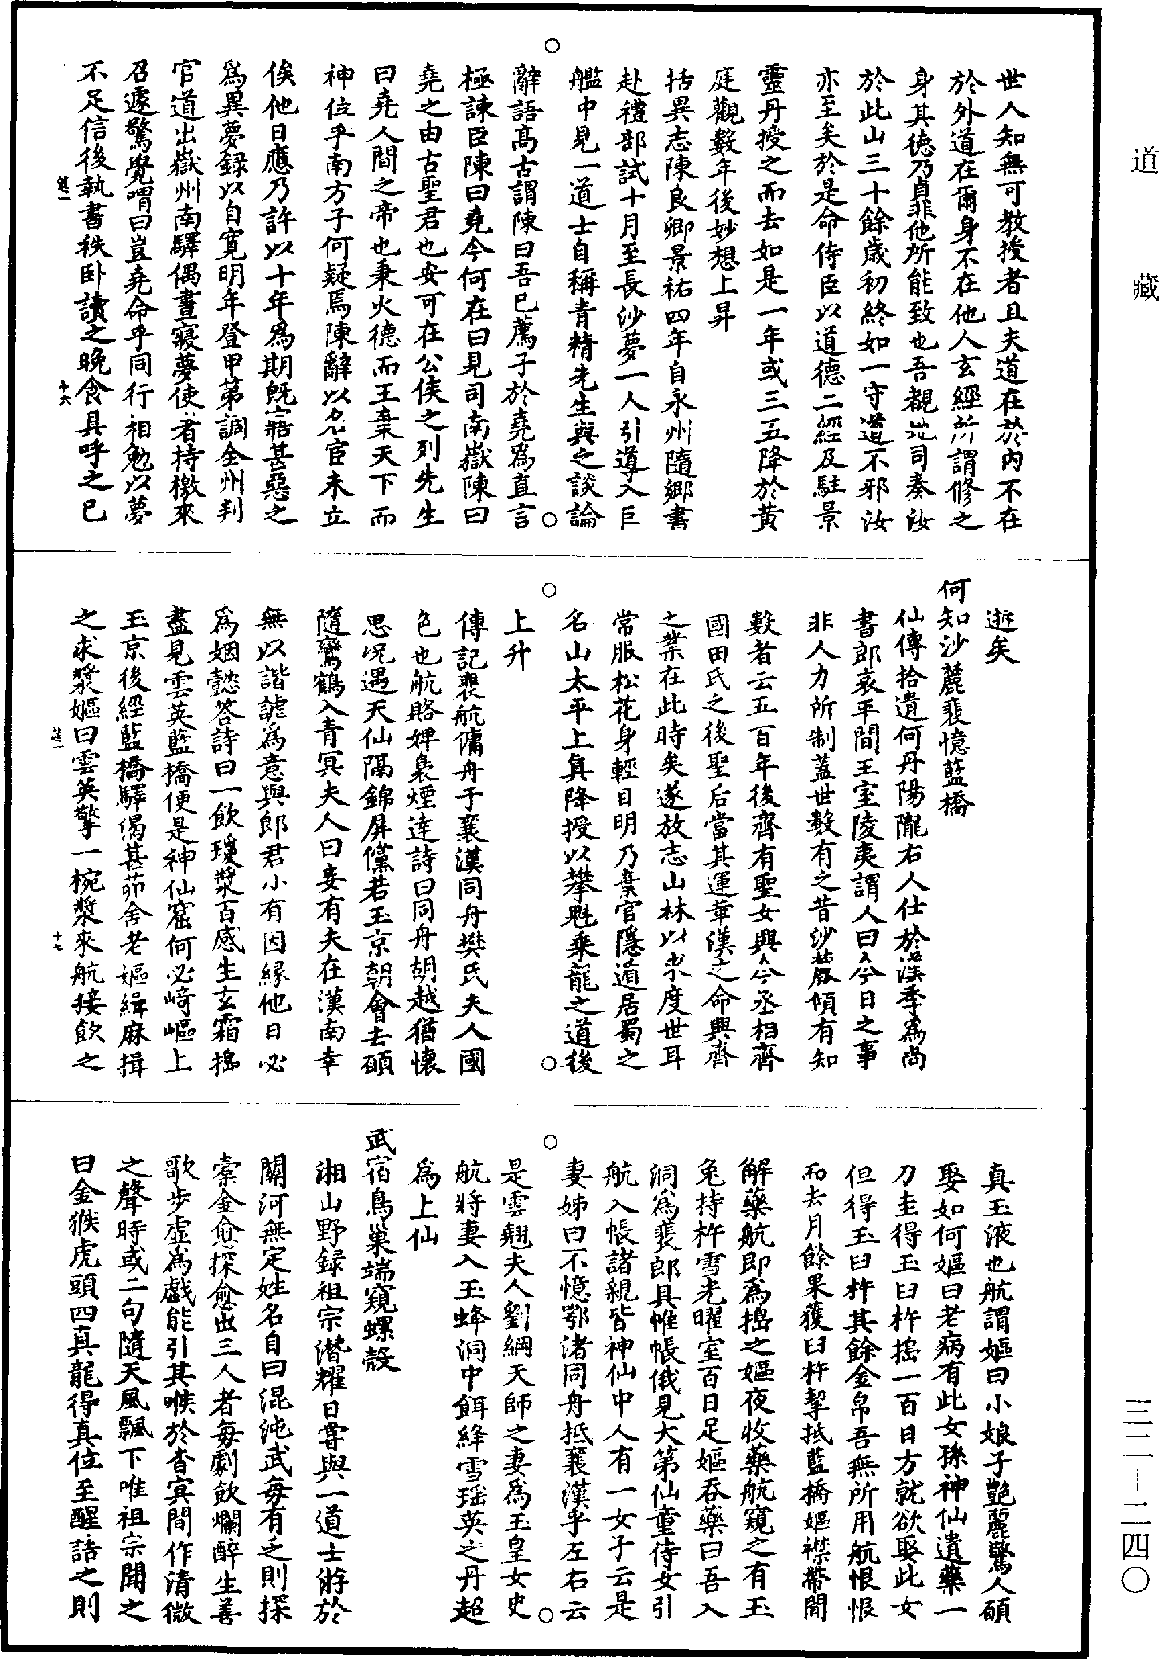 道藏
三二-二四〇
世人知無可教授者且夫道在於內不在
於外道在爾身不在他人玄經所謂修之
身其德乃真非他所能致也吾觀地司奏汝
於此山三十餘歲初終如一守道不邪汝
亦至矣於是命侍臣以道德二經及駐景
靈丹授之而去如是一年或三五降於黃
庭觀數年後妙想上昇
括異志陳良卿景祐四年自永州隨鄉書
赴禮部試十月至長沙夢一人引導入巨
艦中見一道士自稱青精先生與之談論
辭語高古謂陳曰吾已薦子於堯為直言
極諫臣陳曰堯今何在曰見司南嶽陳曰
堯之由古聖君也安可在公侯之列先生
曰堯人間之帝也秉火德而王棄天下而
神位乎南方子何疑焉陳辭以名宦未立
俟他日應乃許以十年為期既寤甚惡之
為異夢錄以自寬明年登甲第調全州判
官道出嶽州南驛偶晝寢夢使者持檄來
召遽驚覺喟曰豈堯命乎同行相勉以夢
不足信後執書秩卧讀之晚食具呼之已
十六
逝矣
何知沙麓裴憶藍橋
仙傳拾遺何丹陽隴右人仕於漢季為尚
書郎哀平間王室陵夷謂人曰今日之事
非人力所制蓋世數有之昔沙麓傾有知
數者云五百年後齊有聖女興今丞相齊
國田氏之後聖后當其運華漢之命興齊
之業在此時矣遂放志山林以求度世耳
常服松花身輕目明乃棄官隱遁居蜀之
名山太平上真降授以攀魁乘龍之道後
上升
傳記裴航傭舟于襄漢同舟樊氏夫人國
色也航賂婢裊煙達詩曰同舟胡越猶懷
思況遇天仙隔錦屏儻若玉京朝會去願
隨鸞鶴入青冥夫人曰妾有夫在漢南幸
無以諧謔為意與郎君小有因緣他日必
為姻懿答詩曰一飲瓊漿百感生玄霜搗
盡見雲英藍橋便是神仙窟何必崎嶇上
玉京後經藍橋驛偈甚茆舍老嫗緝麻揖
之求漿嫗曰雲英擎一椀漿來航接飲之
十七
真玉液也航謂嫗曰小娘子艷麗驚人願
娶如何嫗曰老病有此女孫神仙遺藥一
刀圭得玉臼杵搗一百日方就欲娶此女
但得玉臼杵其餘金帛吾無所用航恨恨
而去月餘果獲臼杵挈抵藍橋嫗襟帶間
解藥航即為搗之嫗夜收藥航窺之有玉
兔持杵雪光曜室百日足嫗吞藥曰吾入
洞為裴郎具帷帳俄見大第仙童侍女引
航入帳諸親皆神仙中人有一女子云是
妻姊曰不憶鄂渚同舟抵襄漢乎左右云
是雲翹夫人劉綱天師之妻為玉皇女史
航將妻入玉峰洞中餌絳雪瑤英之丹超
為上仙
武宿鳥巢端窺螺殼
湘山野錄祖宗潛耀日嘗與一道士游於
關河無定姓名自曰混沌武每有乏則探
索金愈探愈出三人者每劇飲爛醉生善
歌步虛為戲能引其喉於杳冥間作清微
之聲時或二句隨天風飄下唯祖宗聞之
曰金猴虎頭四真龍得真位至醒詰之則